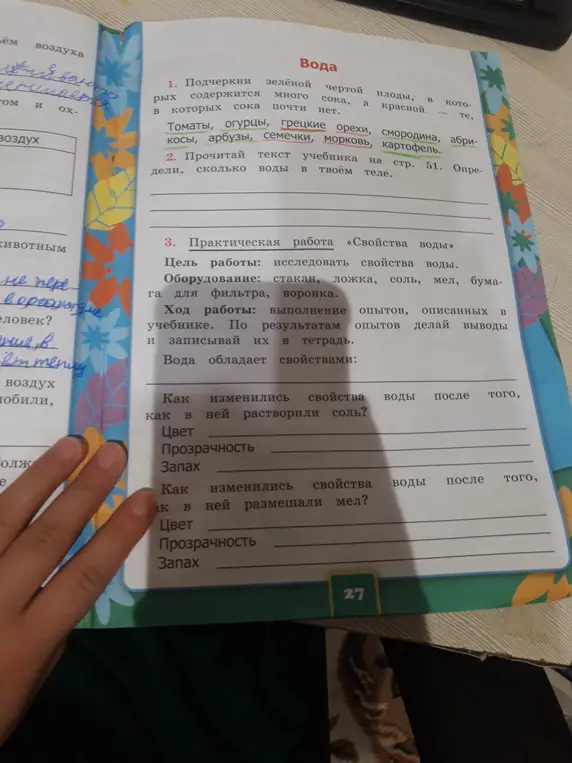 ём воздуха
том и ох-
воздух
животным
не пере
в организме
еловек?
воздух
мобили,
Вода
1. Подчеркни зелёной чертой плоды, в кото-
рых содержится много сока, а красной — те,
в которых сока почти нет.
Томаты, огурцы, грецкие орехи, смородина, абри-
косы, арбузы, семечки, морковь, картофель.
2. Прочитай текст учебника на стр. 51. Опре-
дели, сколько воды в твоём теле.
3. Практическая работа «Свойства воды»
Цель работы: исследовать свойства воды.
Оборудование: стакан, ложка, соль, мел, бума-
га для фильтра, воронка.
Ход работы: выполнение опытов, описанных в
учебнике. По результатам опытов делай выводы
и записывай их в тетрадь.
Вода обладает свойствами:
Как изменились свойства воды после того,
как в ней растворили соль?
Цвет
Прозрачность
Запах
Как изменились свойства воды после того,
ак в ней размешали мел?
Цвет
Прозрачность
Запах
27